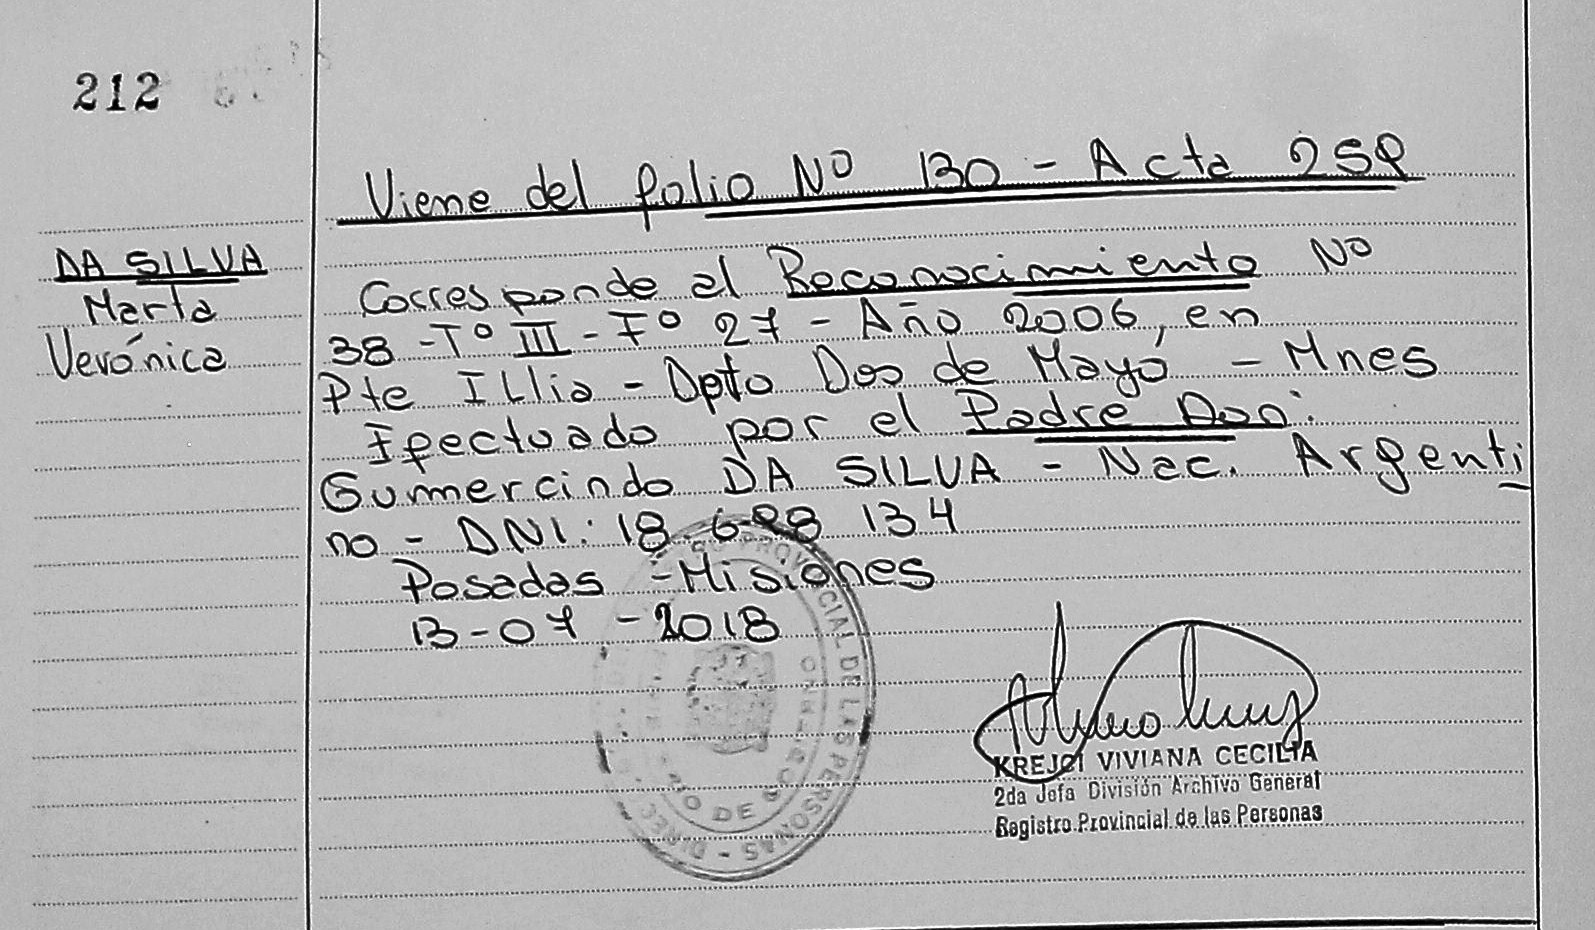 212
Viene del folio Nº 130 - Acta 259
DA SILVA
Marta
Verónica
Corresponde al Reconocimiento Nº
38 - Tº III - Fº 27 - Año 2006, en
Pte Illia - Dpto Dos de Mayo - Mnes
Efectuado por el Padre Don:
Gumercindo DA SILVA - Nac. Argenti
no - DNI: 18 698 134
Posadas - Misiones
13-07-2018
KREJCI VIVIANA CECILIA
2da Jefa División Archivo General
Registro Provincial de las Personas
PROVINCIAL DE LAS PERSONAS